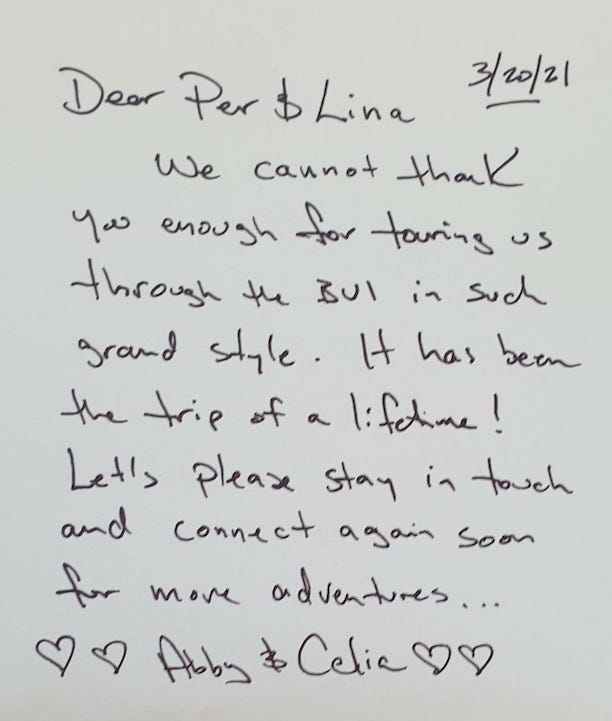 3/20/21
Dear Per & Lina
We cannot thank
you enough for touring us
through the BVI in such
grand style. It has been
the trip of a lifetime!
Let's please stay in touch
and connect again soon
for more adventures...
♡ ♡ Abby & Celia ♡♡